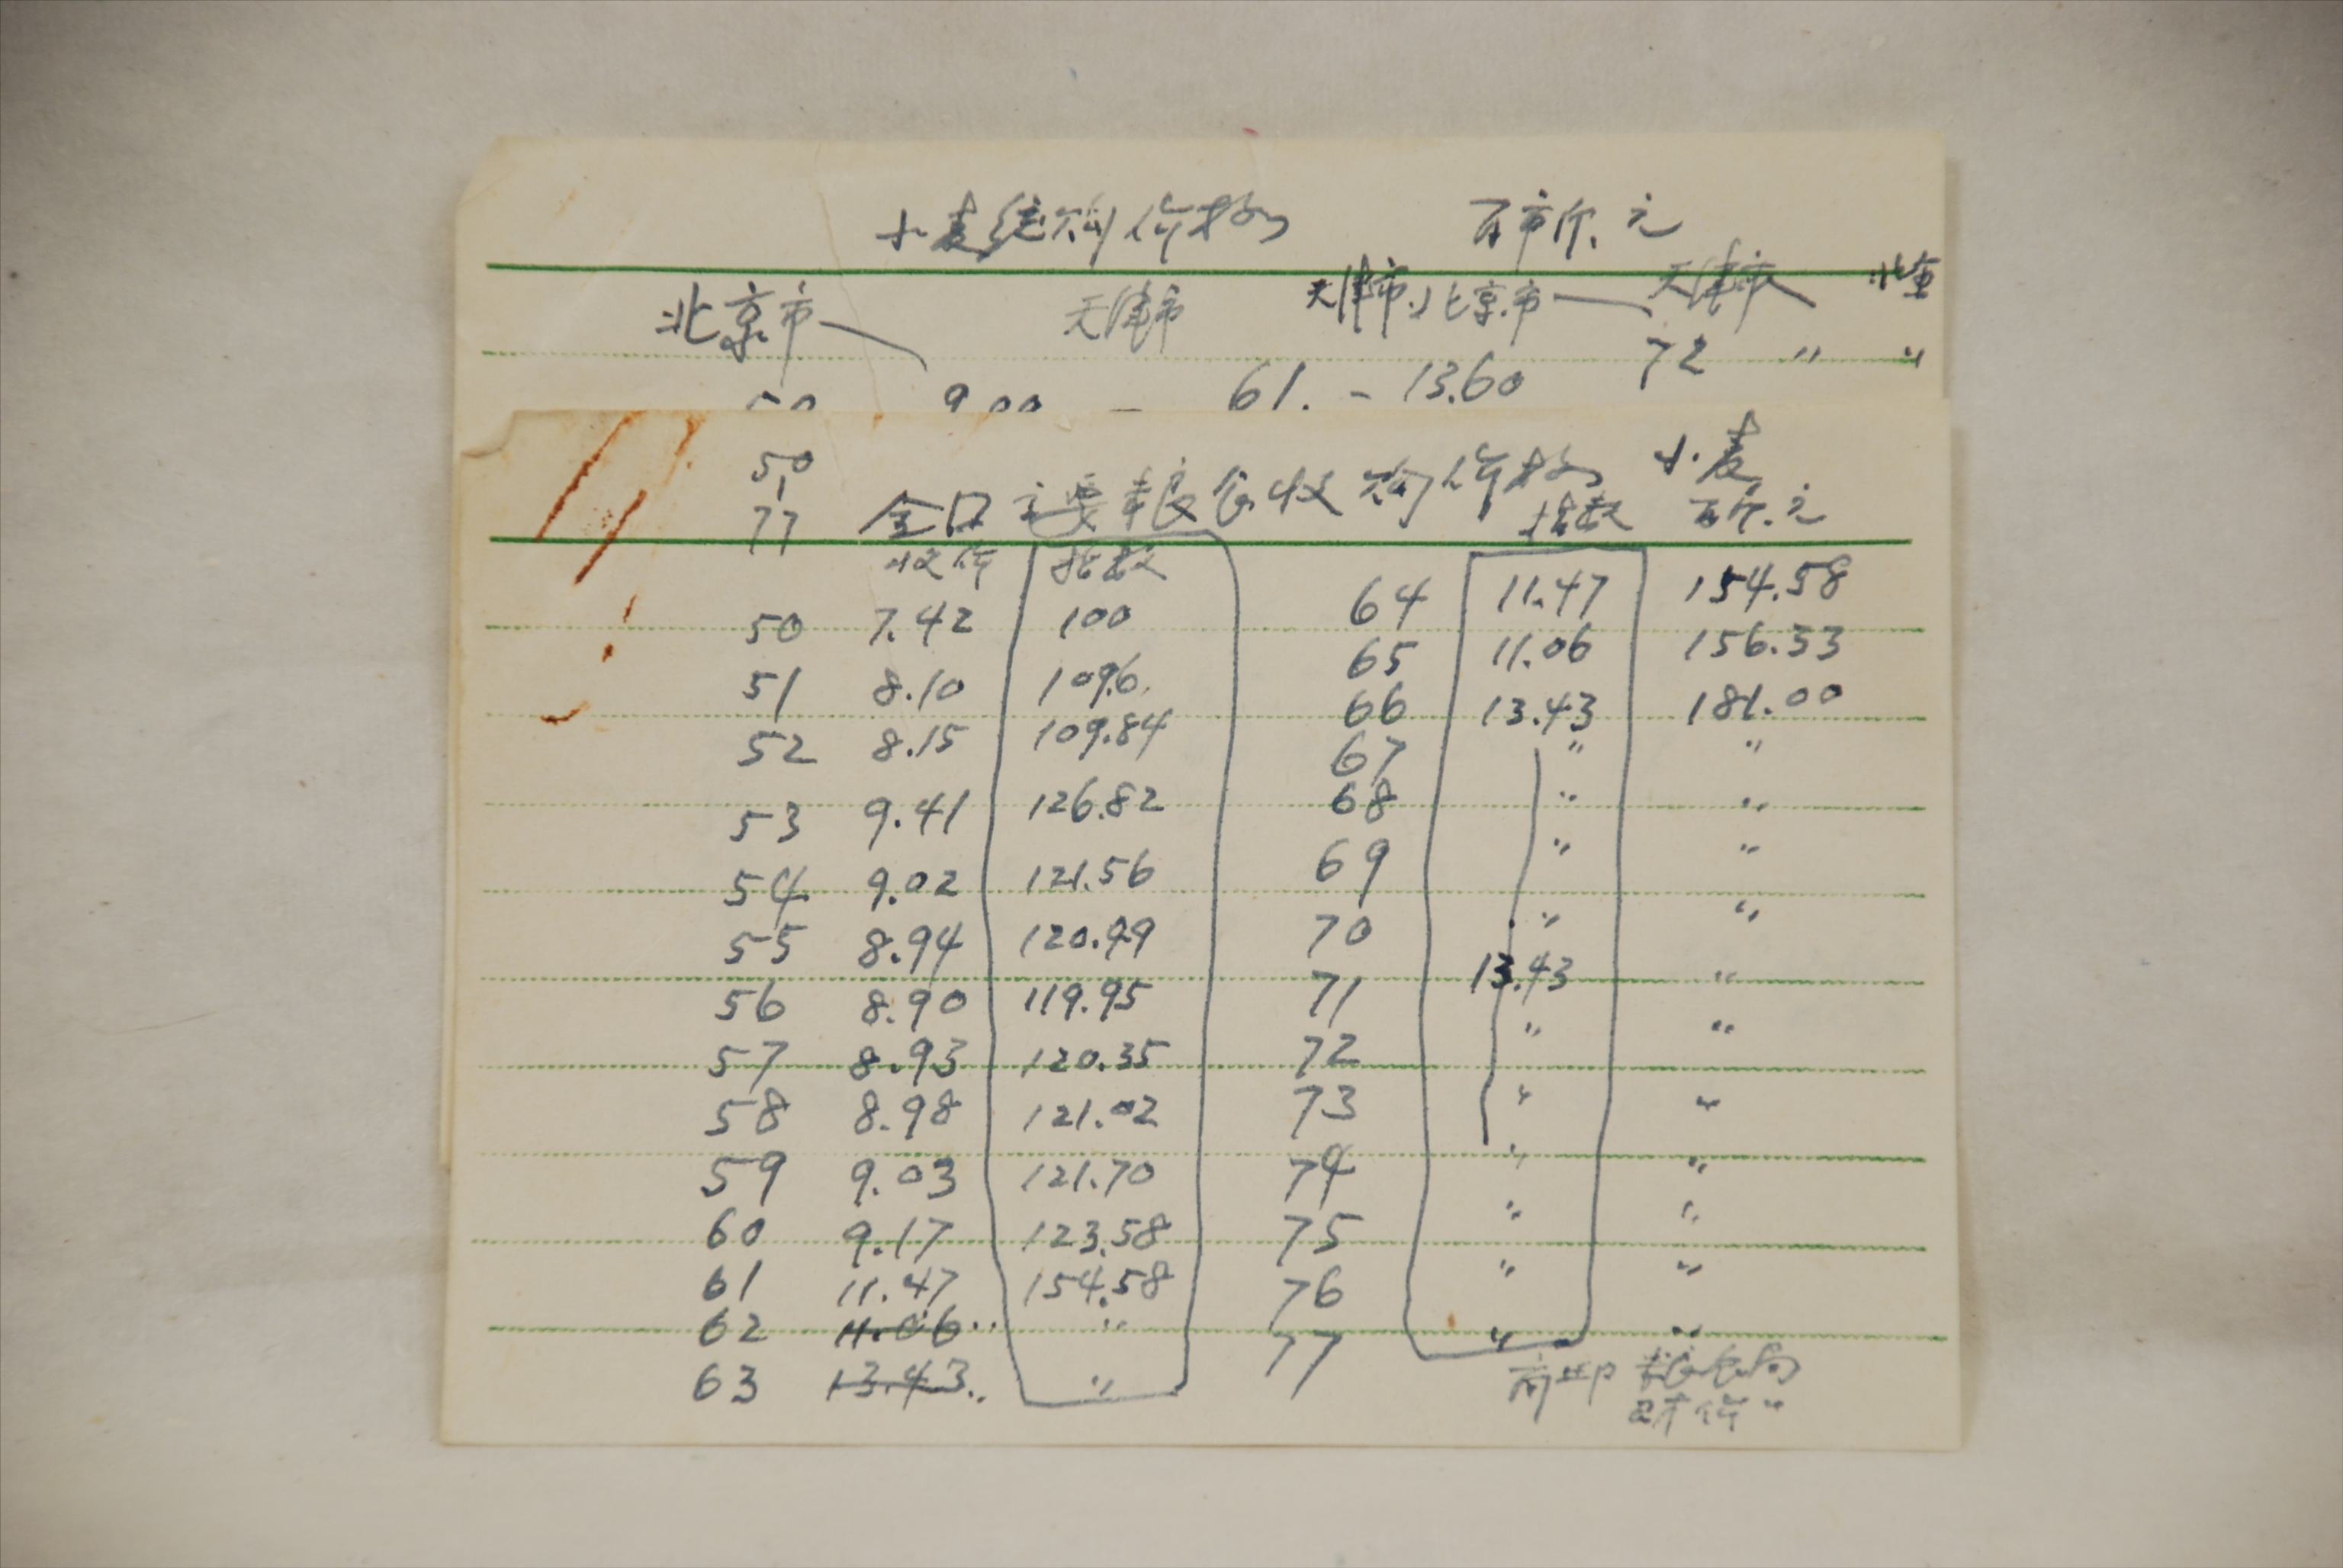 小麦统购价格 百市斤.元
北京市 天津市 天津市 北京市 天津市
72 〃 〃
9.00 — 61. - 13.60
50
77 全国主要粮食收购价格 小麦
指数 百斤.元
收价 指数
50 7.42 100 64 11.47 154.58
51 8.10 109.6 65 11.06 156.33
52 8.15 109.84 66 13.43 181.00
67 〃 〃
53 9.41 126.82 68 〃 〃
54 9.02 121.56 69 〃 〃
55 8.94 120.49 70 〃 〃
56 8.90 119.95 71 13.43 〃
57 8.93 120.35 72 〃 〃
58 8.98 121.02 73 〃 〃
59 9.03 121.70 74 〃 〃
60 9.17 123.58 75 〃 〃
61 11.47 154.58 76 〃 〃
62 11.06 〃 〃 77 〃 〃
63 13.43 〃 〃
商业部 粮食局
财价〃